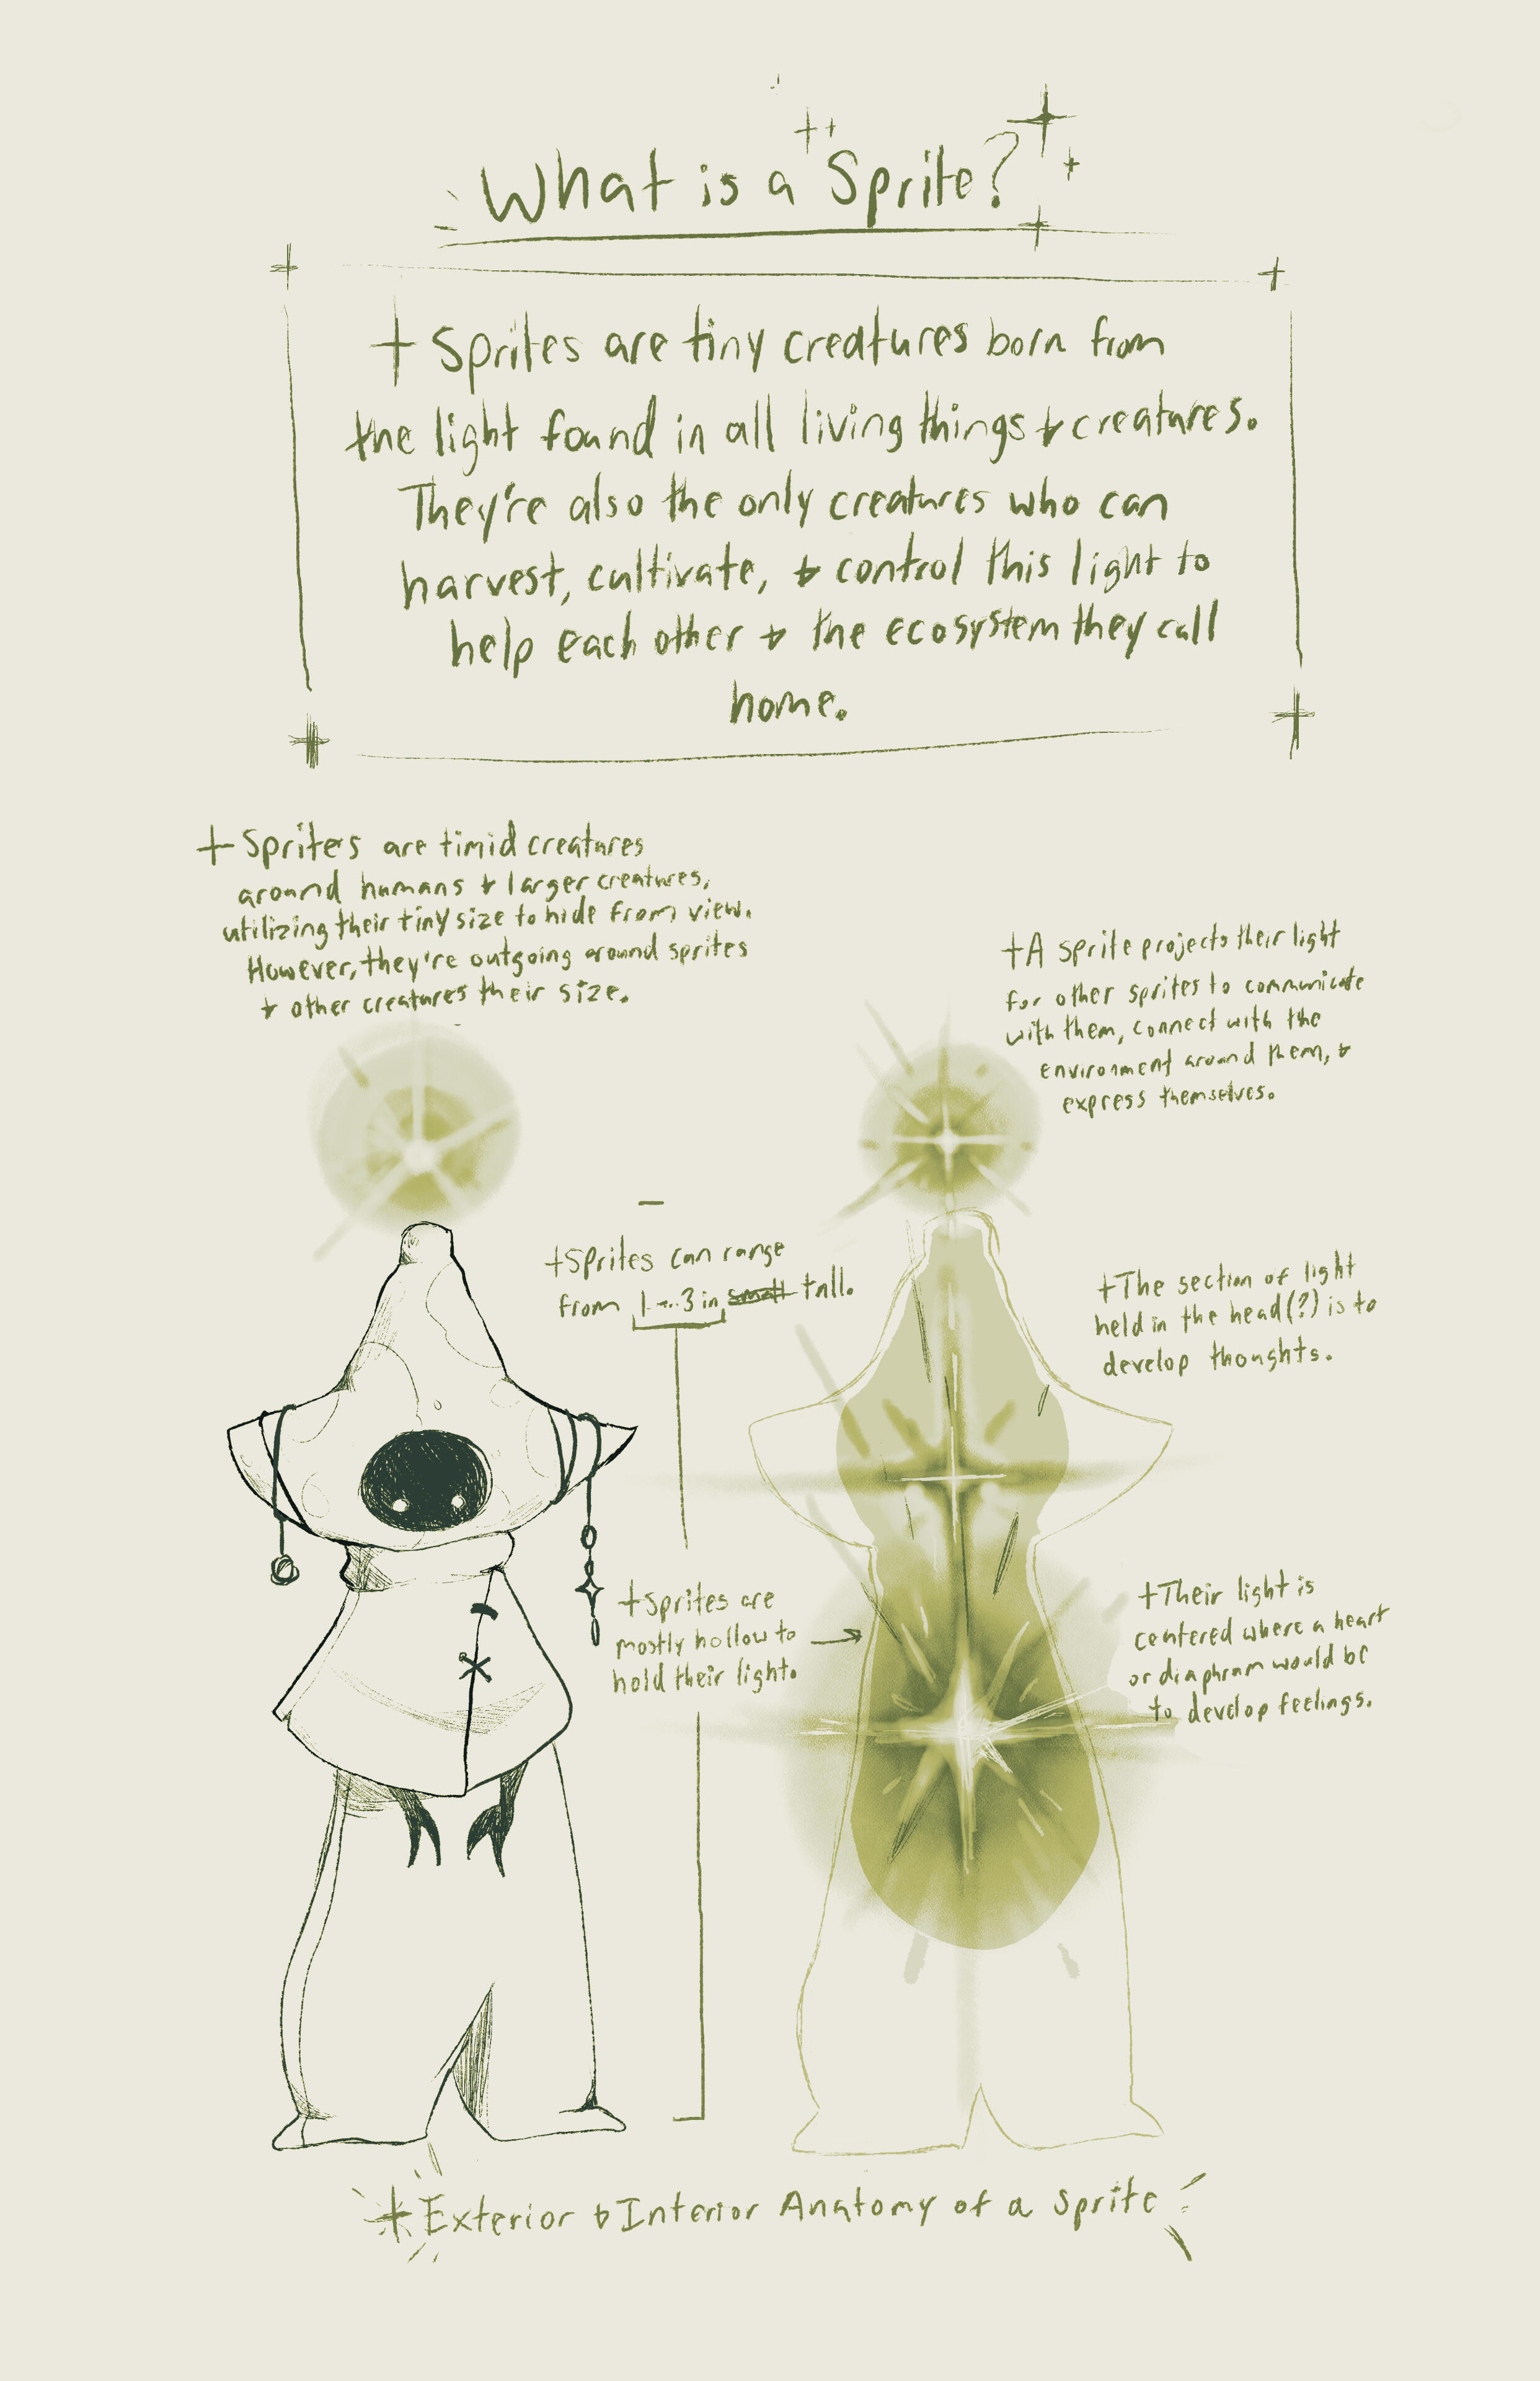 What is a Sprite?
+ Sprites are tiny creatures born from
the light found in all living things & creatures.
They're also the only creatures who can
harvest, cultivate, & control this light to
help each other & the ecosystem they call
home.
+ Sprites are timid creatures
around humans & larger creatures,
utilizing their tiny size to hide from view.
However, they're outgoing around sprites
& other creatures their size.
+ A sprite projects their light
for other sprites to communicate
with them, connect with the
environment around them, &
express themselves.
+ Sprites can range
from 1-3 in small tall.
+ The section of light
held in the head(?) is to
develop thoughts.
+ Sprites are
mostly hollow to
hold their light.
+ Their light is
centered where a heart
or diaphram would be
to develop feelings.
+ Exterior & Interior Anatomy of a Sprite